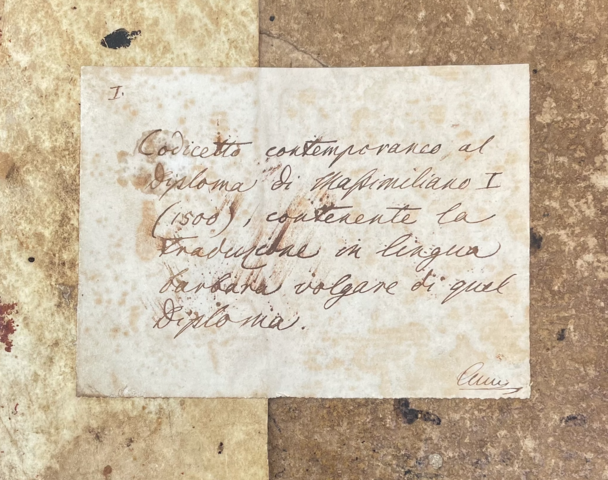 I.
Codicetto contemporaneo al
diploma di Massimiliano I
(1500), contenente la
traduzione in lingua
barbara volgare di quel
Diploma.